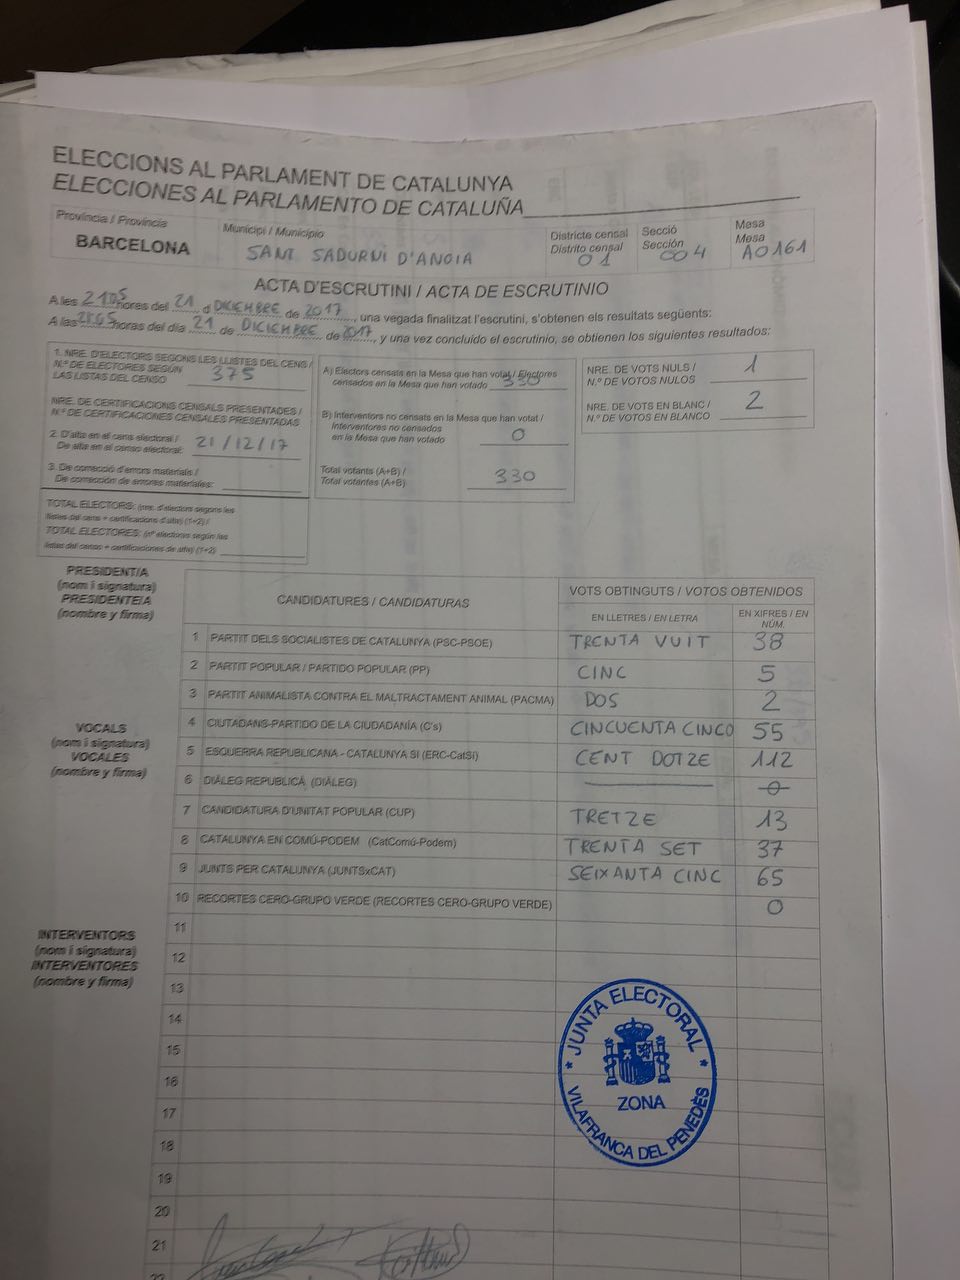 ELECCIONS AL PARLAMENT DE CATALUNYA
ELECCIONES AL PARLAMENTO DE CATALUÑA
Província / Provincia
BARCELONA
Municipi / Municipio
SANT SADURNÍ D'ANOIA
Districte censal
Distrito censal
01
Secció
Sección
004
Mesa
Mesa
A0161
ACTA D'ESCRUTINI / ACTA DE ESCRUTINIO
A les 2105 hores del 21 d DICIEMBRE de 2017, una vegada finalitzat l'escrutini, s'obtenen els resultats següents:
A las 2105 horas del día 21 de DICIEMBRE de 2017, y una vez concluido el escrutinio, se obtienen los siguientes resultados:
1. NRE. D'ELECTORS SEGONS LES LLISTES DEL CENS /
N.º DE ELECTORES SEGÚN
LAS LISTAS DEL CENSO
375
NRE. DE CERTIFICACIONS CENSALS PRESENTADES /
N.º DE CERTIFICACIONES CENSALES PRESENTADAS
2. D'alta en el cens electoral /
De alta en el censo electoral:
21/12/17
3. De correcció d'errors materials /
De corrección de errores materiales:
TOTAL ELECTORS: (nre. d'electors segons les
llistes del cens + certificacions d'alta) (1+2) /
TOTAL ELECTORES: (nº electores según las
listas del censo + certificaciones de alta) (1+2)
A) Electors censats en la Mesa que han votat / Electores
censados en la Mesa que han votado
330
B) Interventors no censats en la Mesa que han votat /
Interventores no censados
en la Mesa que han votado
0
Total votants (A+B) /
Total votantes (A+B)
330
NRE. DE VOTS NULS /
N.º DE VOTOS NULOS
1
NRE. DE VOTS EN BLANC /
N.º DE VOTOS EN BLANCO
2
PRESIDENT/A
(nom i signatura)
PRESIDENTE/A
(nombre y firma)
VOCALS
(nom i signatura)
VOCALES
(nombre y firma)
INTERVENTORS
(nom i signatura)
INTERVENTORES
(nombre y firma)
CANDIDATURES / CANDIDATURAS
VOTS OBTINGUTS / VOTOS OBTENIDOS
EN LLETRES / EN LETRA
EN XIFRES / EN
NÚM.
1 PARTIT DELS SOCIALISTES DE CATALUNYA (PSC-PSOE) TRENTA VUIT 38
2 PARTIT POPULAR / PARTIDO POPULAR (PP) CINC 5
3 PARTIT ANIMALISTA CONTRA EL MALTRACTAMENT ANIMAL (PACMA) DOS 2
4 CIUTADANS-PARTIDO DE LA CIUDADANÍA (C's) CINCUENTA CINCO 55
5 ESQUERRA REPUBLICANA - CATALUNYA SI (ERC-CatSí) CENT DOTZE 112
6 DIÀLEG REPUBLICÀ (DIÀLEG) 0
7 CANDIDATURA D'UNITAT POPULAR (CUP) TRETZE 13
8 CATALUNYA EN COMÚ-PODEM (CatComú-Podem) TRENTA SET 37
9 JUNTS PER CATALUNYA (JUNTSxCAT) SEIXANTA CINC 65
10 RECORTES CERO-GRUPO VERDE (RECORTES CERO-GRUPO VERDE) 0
11
12
13
14
15
16
17
18
19
20
21
22
JUNTA ELECTORAL
ZONA
VILAFRANCA DEL PENEDÈS